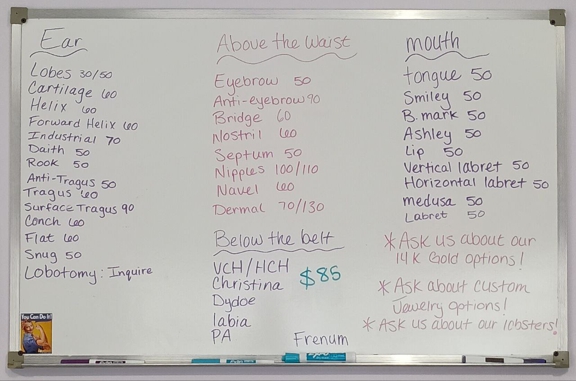 Ear
Lobes 30/50
Cartilage 60
Helix 60
Forward Helix 60
Industrial 70
Daith 50
Rook 50
Anti-Tragus 50
Tragus 60
Surface Tragus 90
Conch 60
Flat 60
Snug 50
Lobotomy: Inquire
You Can Do It!
Above the Waist
Eyebrow 50
Anti-eyebrow 90
Bridge 60
Nostril 60
Septum 50
Nipples 100/110
Navel 60
Dermal 70/130
Below the belt
VCH/HCH
Christina
Dydoe
labia
PA
$85
Frenum
mouth
tongue 50
Smiley 50
B.mark 50
Ashley 50
Lip 50
Vertical labret 50
Horizontal labret 50
medusa 50
Labret 50
*Ask us about our
14K Gold options!
*Ask about custom
Jewelry options!
*Ask us about our lobsters!